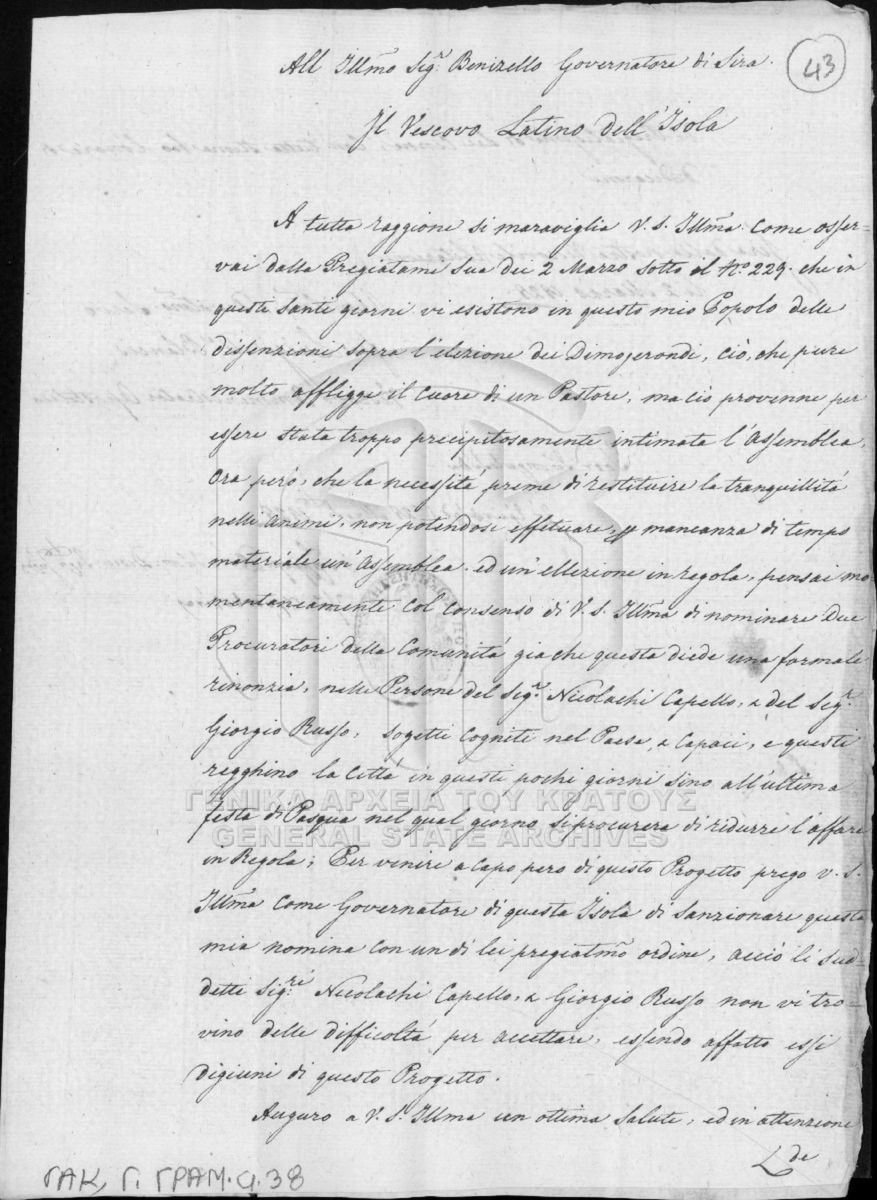 All Illmo Sigr. Benizello Governatore di Sira.
43
Il Vescovo Latino dell'Isola
A tutta raggione si maraviglia V. S. Illma. come osser-
vai dalla Pregiatame Sua dei 2 Marzo sotto il No 229. che in
questi santi giorni vi esistono in questo mio Popolo delle
dissenzioni sopra l'elezione dei Dimogerondi, ciò, che pure
molto affligge il cuore di un Pastore, ma ciò provenne per
essere stata troppo precipitosamente intimata l'Assemblea,
Ora però, che la necessitá preme di restituire la tranquillitá
nelli animi, non potendosi effetuare, p mancanza di tempo
materiale un'Assemblea. ed un'ellezione in regola, pensai mo-
mentaneamente col consenso di V. S. Illma di nominare Due
Procuratori della Comunitá gia che questa diede una formale
renonzia, nelle Persone del Sigr. Nicolachi Capello, e del Sigr.
Giorgio Russo, sogetti cogniti nel Paese, e capaci, e questi
regghino la Cittá in questi pochi giorni sino all'ultima
ΓΕΝΙΚΑ ΑΡΧΕΙΑ ΤΟΥ ΚΡΑΤΟΥΣ
festa di Pasqua nel qual giorno si procurera di ridurre l'affare
GENERAL STATE ARCHIVES
in Regola; Per venire a capo pero di questo Progetto prego V. S.
Illma come Governatore di questa Isola di sanzionare questa
mia nomina con un di lei pregiatmo ordine, acciò li sud-
detti Sigri. Nicolachi Capello, e Giorgio Russo non vi tro-
vino delle difficoltá per accettare, essendo affatto essi
digiuni di questo Progetto.
Auguro a V. S. Illma un ottima salute, ed in attenzione
de
ΓΑΚ, Γ. ΓΡΑΜ. 38